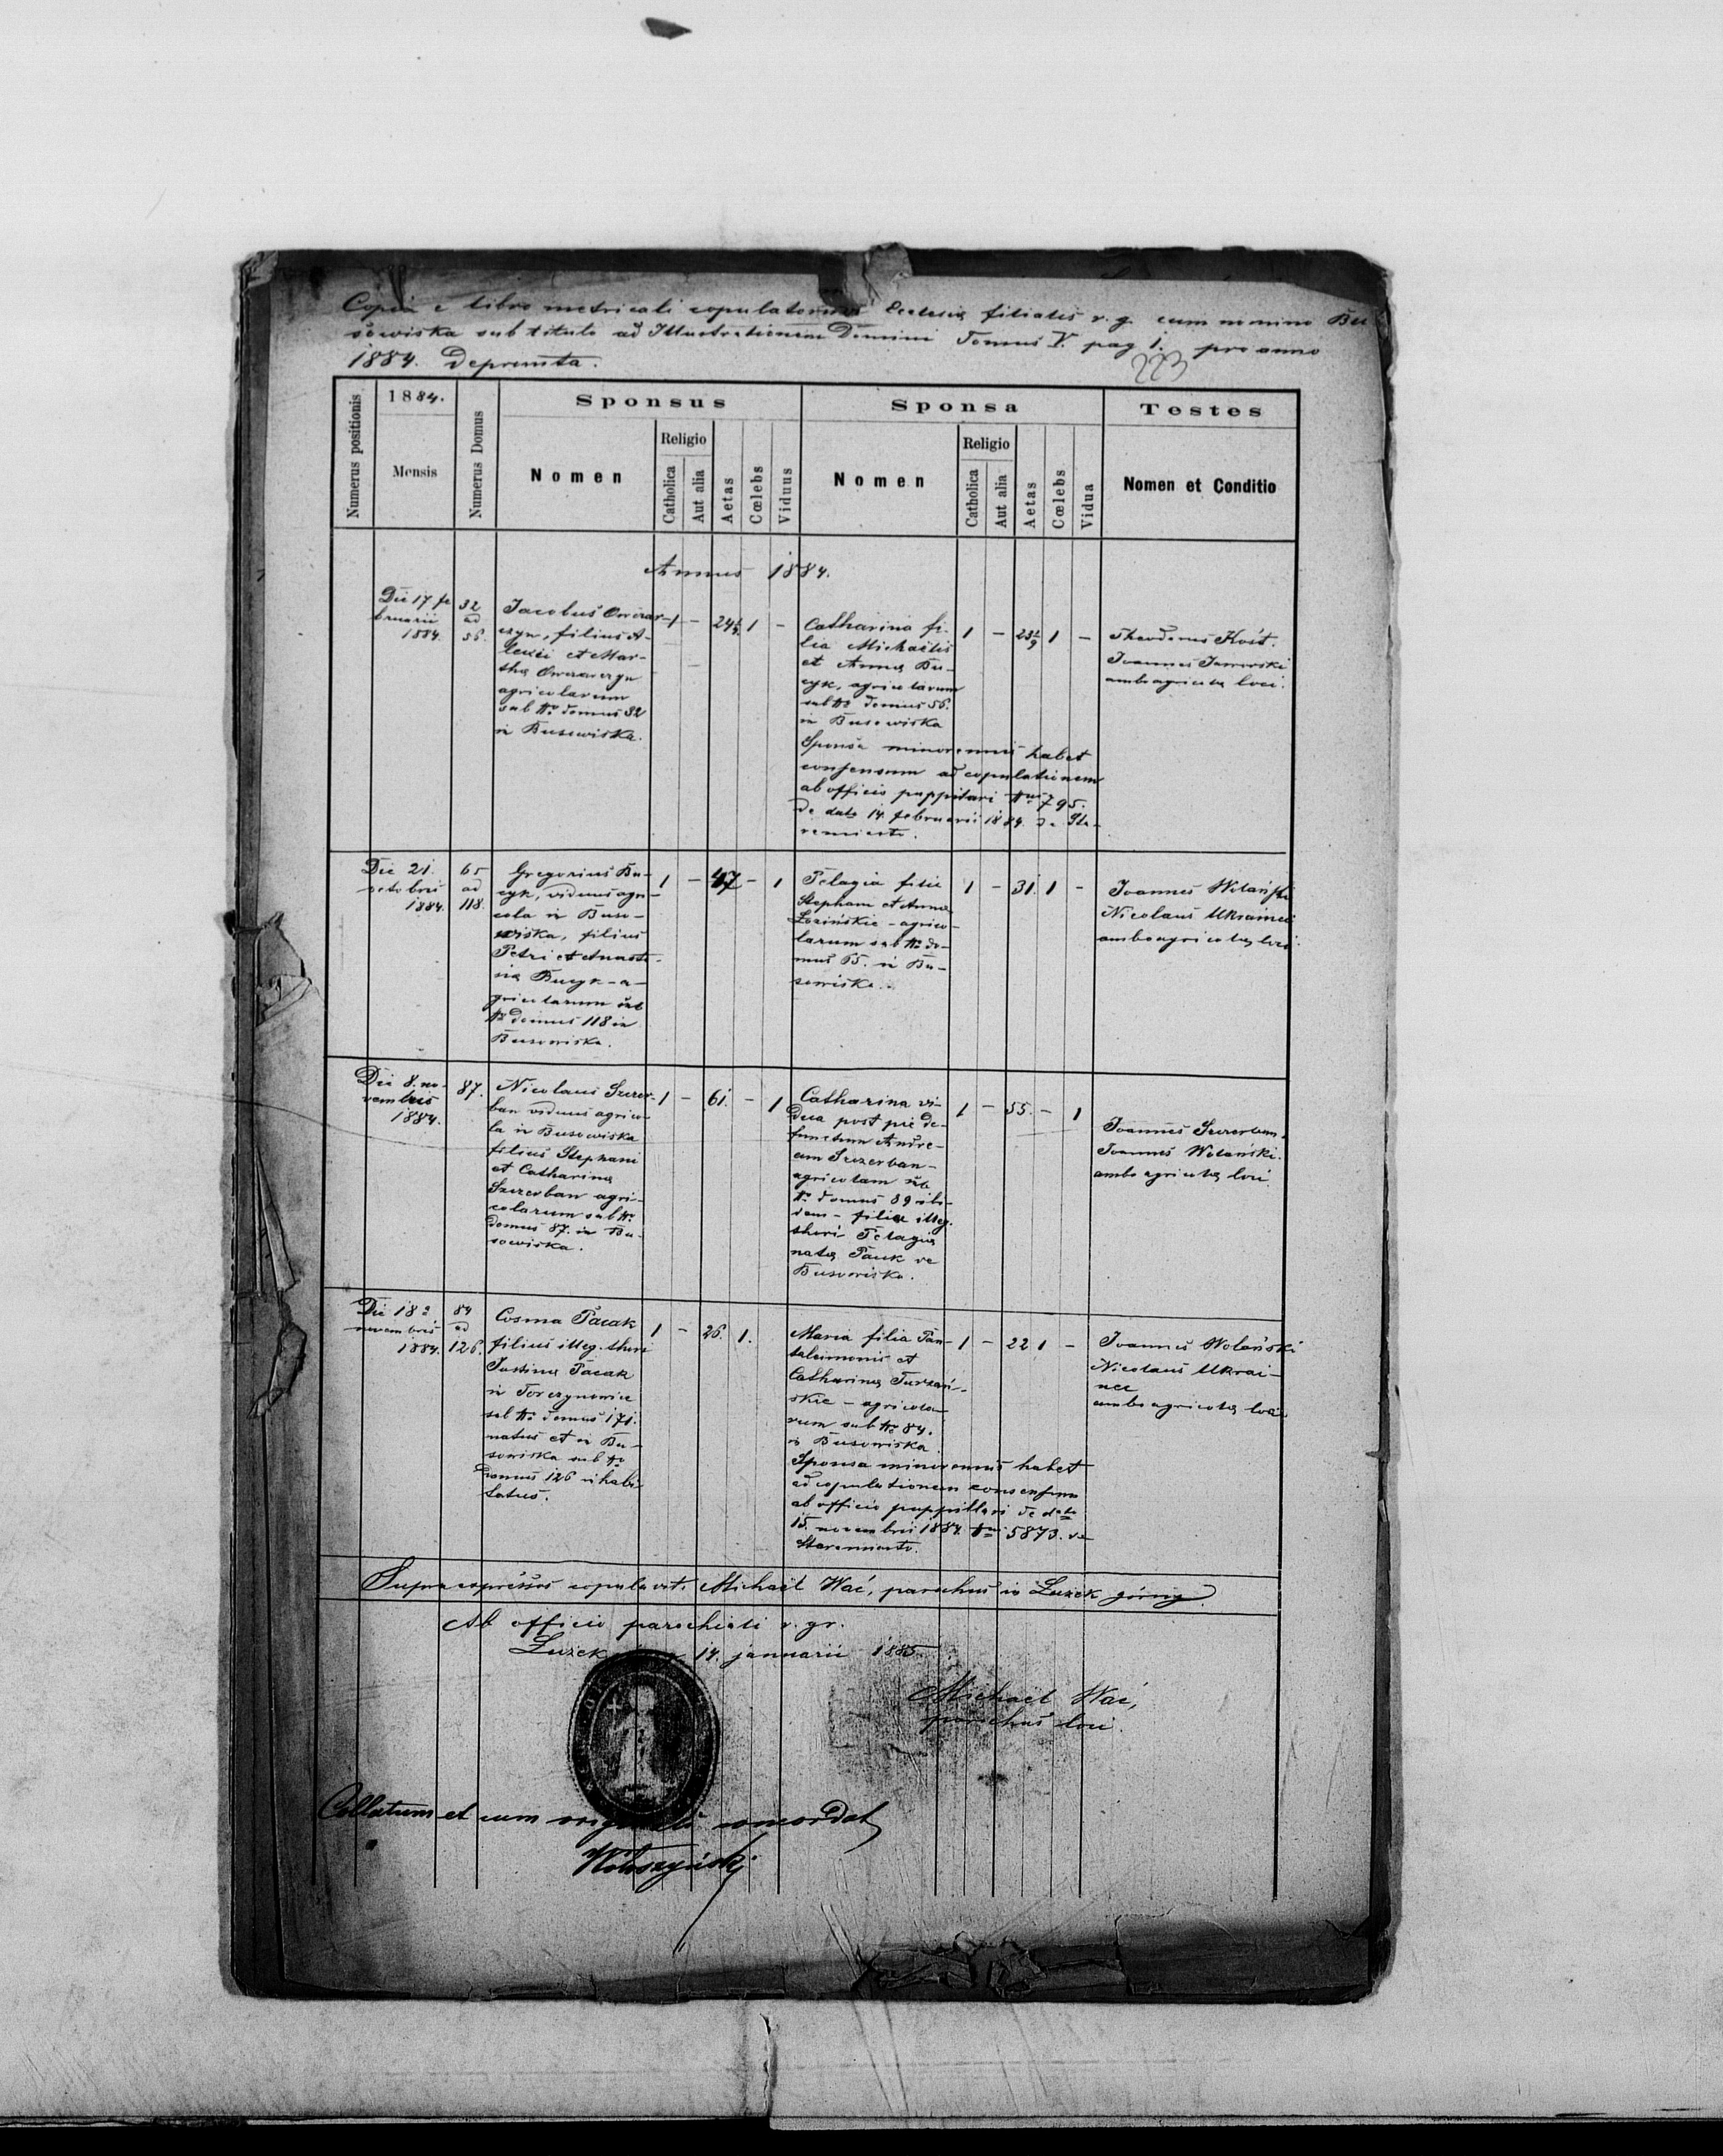 Copia e libro metricali copulatorum Ecclesiæ filialis r. g. cum nomine Bu
sowiska sub titulo ad Illustrationem Domini Tomus V. pag 1. pro anno
1884. Deprompta.
223
Numerus positionis
1884.
Mensis
Numerus Domus
Sponsus
Nomen
Religio
Catholica
Aut alia
Aetas
Cœlebs
Viduus
Sponsa
Nomen
Religio
Catholica
Aut alia
Aetas
Cœlebs
Vidua
Testes
Nomen et Conditio
Annus 1884.
Die 17 fe
bruarii
1884.
32
ad
56.
Jacobus Owczar-
czyn, filius A-
lexii et Mar-
thæ Owczarczyn
agricolarum
sub No domus 32
in Busowiska.
1 - 24 1 -
Catharina fi-
lia Michaëlis
et Annæ Bu-
cyk, agricolarum
sub No domus 56.
in Busowiska
Sponsa minorennis habet
consensum ad copulationem
ab officio puppilari 795.
de dato 14. februarii 1884. de Sta-
remiasto.
1 - 23 1 -
Theodorus Kość.
Joannes Jaworski
ambo agricolæ loci.
Die 21.
octobris
1884.
65
ad
118.
Gregorius Bu-
cyk, viduus agri-
cola in Buso-
wiska, filius
Petri et Anasta-
siæ Bucyk - a-
gricolarum sub
No domus 118 in
Busowiska.
1 - 47 - 1
Pelagia filia
Stephani et Annæ
Łozińskie - agrico-
larum sub No do-
mus 65. in Bu-
sowiska.
1 - 31. 1 -
Joannes Wolański
Nicolaus Ukrainec
ambo agricolæ loci.
Die 8. no-
vembris
1884.
87.
Nicolaus Szczer-
ban viduus agrico-
la in Busowiska
filius Stephani
et Catharinæ
Szczerban agri-
colarum sub No
domus 87. in Bu-
sowiska.
1 - 61. - 1
Catharina vi-
dua post pie de-
functum Andre-
am Szczerban -
agricolam sub
No domus 89 ibi-
dem - filia illeg.
thori Pelagiæ
natæ Pauk de
Busowiska.
1 - 55. - 1
Joannes Szczerban.
Joannes Wolański.
ambo agricolæ loci
Die 18a
novembris
1884.
84
ad
126.
Cosma Pacak
filius illeg. thori
Justinæ Pacak
in Torczynowice
sub No domus 171.
natus et in Bu-
sowiska sub No
domus 126 inhabi-
tatus.
1 - 26. 1.
Maria filia Pan-
taleimonis et
Catharinæ Turzań-
skie - agricola-
rum sub No 84.
in Busowiska.
Sponsa minorennis habet
ad copulationem consensum
ab officio puppillari de dato
15. novembris 1884. 5873. de
Staremiasto.
1 - 22 1 -
Joannes Wolański
Nicolaus Ukrai-
nec
ambo agricolæ loci
Supraexpressos copulavit. Michaël Wać, parochus in Łużek górny.
Ab officio parochiali r. gr.
Łużek 14. januarii 1885.
Michaël Wać,
parochus loci.
Collatum et cum originali concordat
Wołoszyński